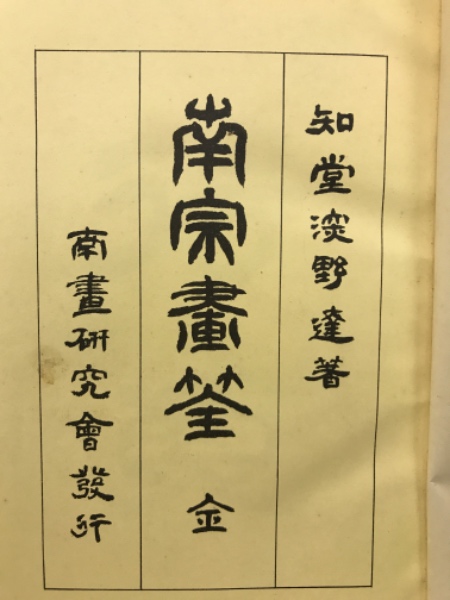 知堂淡野達著
南宗畫筌 金
南畫研究會發行